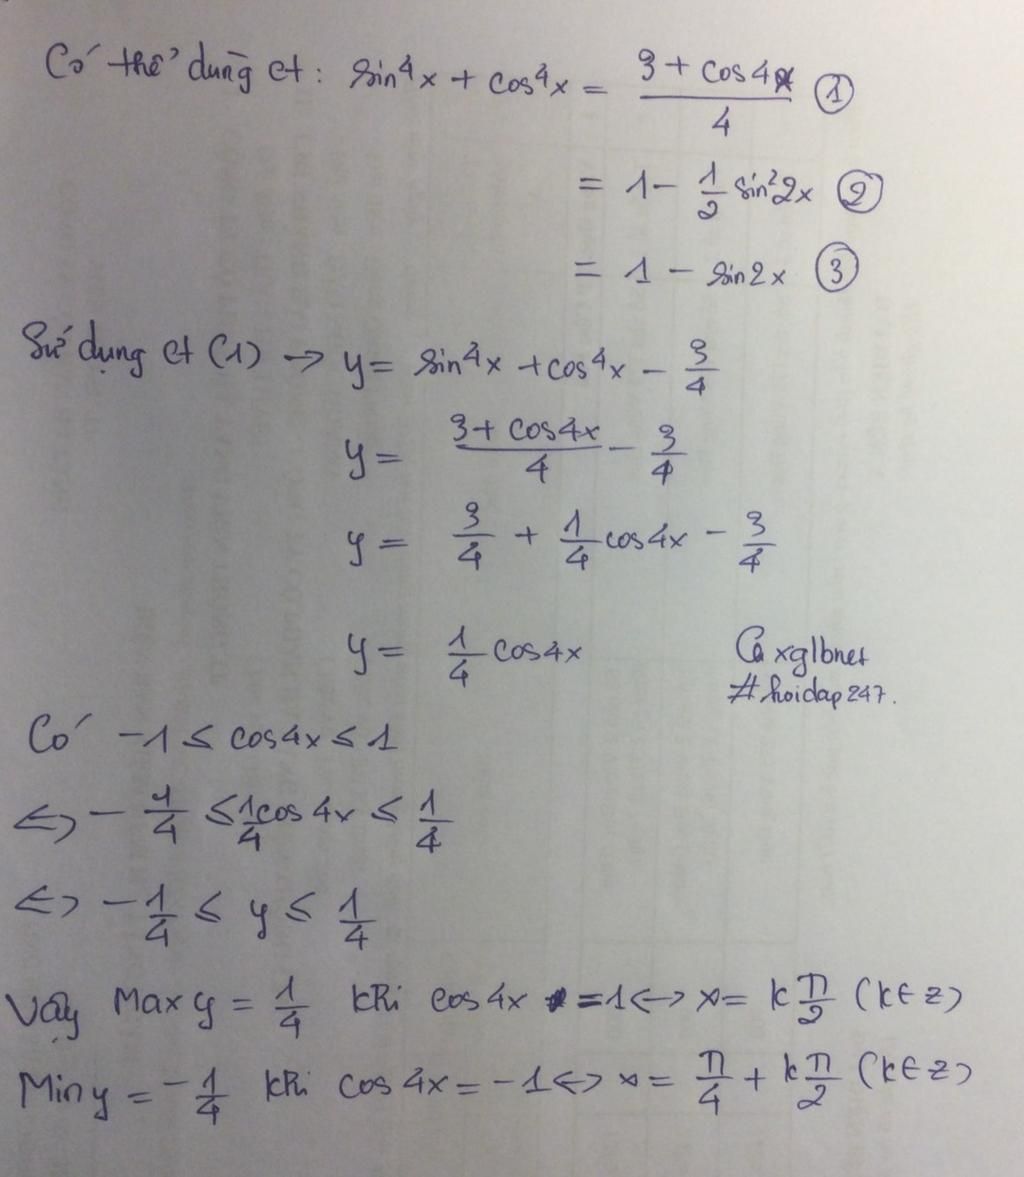 Có thể dùng ct: sin⁴x + cos⁴x = (3 + cos4x)/4 ①
= 1 - 1/2 sin²2x ②
= 1 - sin2x ③
Sử dụng ct (1) → y = sin⁴x + cos⁴x - 3/4
y = (3 + cos4x)/4 - 3/4
y = 3/4 + 1/4 cos4x - 3/4
y = 1/4 cos4x
xglbnet
#hoidap247.
Có -1 ≤ cos4x ≤ 1
<=> -1/4 ≤ 1/4 cos4x ≤ 1/4
<=> -1/4 ≤ y ≤ 1/4
Vậy Max y = 1/4 khi cos4x = 1 <-> x = kπ/2 (k∈z)
Min y = -1/4 khi cos4x = -1 <=> x = π/4 + kπ/2 (k∈z)